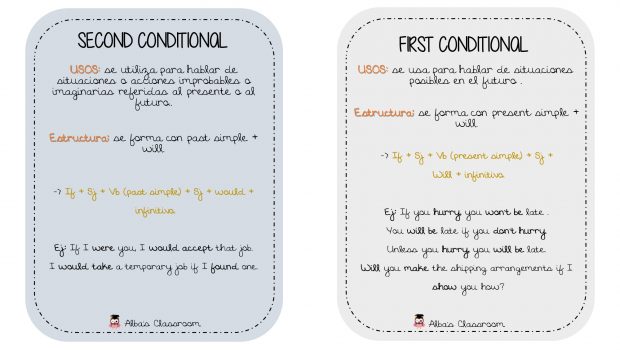 SECOND CONDITIONAL
USOS: se utiliza para hablar de
situaciones o acciones improbables o
imaginarias referidas al presente o al
futuro.
Estructura: se forma con past simple +
will
-> If + Sj + Vb (past simple) + Sj + would +
infinitivo
Ej: If I were you, I would accept that job.
I would take a temporary job if I found one.
Alba's Classroom
FIRST CONDITIONAL
USOS: se usa para hablar de situaciones
posibles en el futuro .
Estructura: se forma con present simple +
will
-> If + Sj + Vb (present simple) + Sj +
Will + infinitivo
Ej: If you hurry, you won't be late .
You will be late if you don't hurry
Unless you hurry you will be late.
Will you make the shipping arrangements if I
show you how?
Alba's Classroom